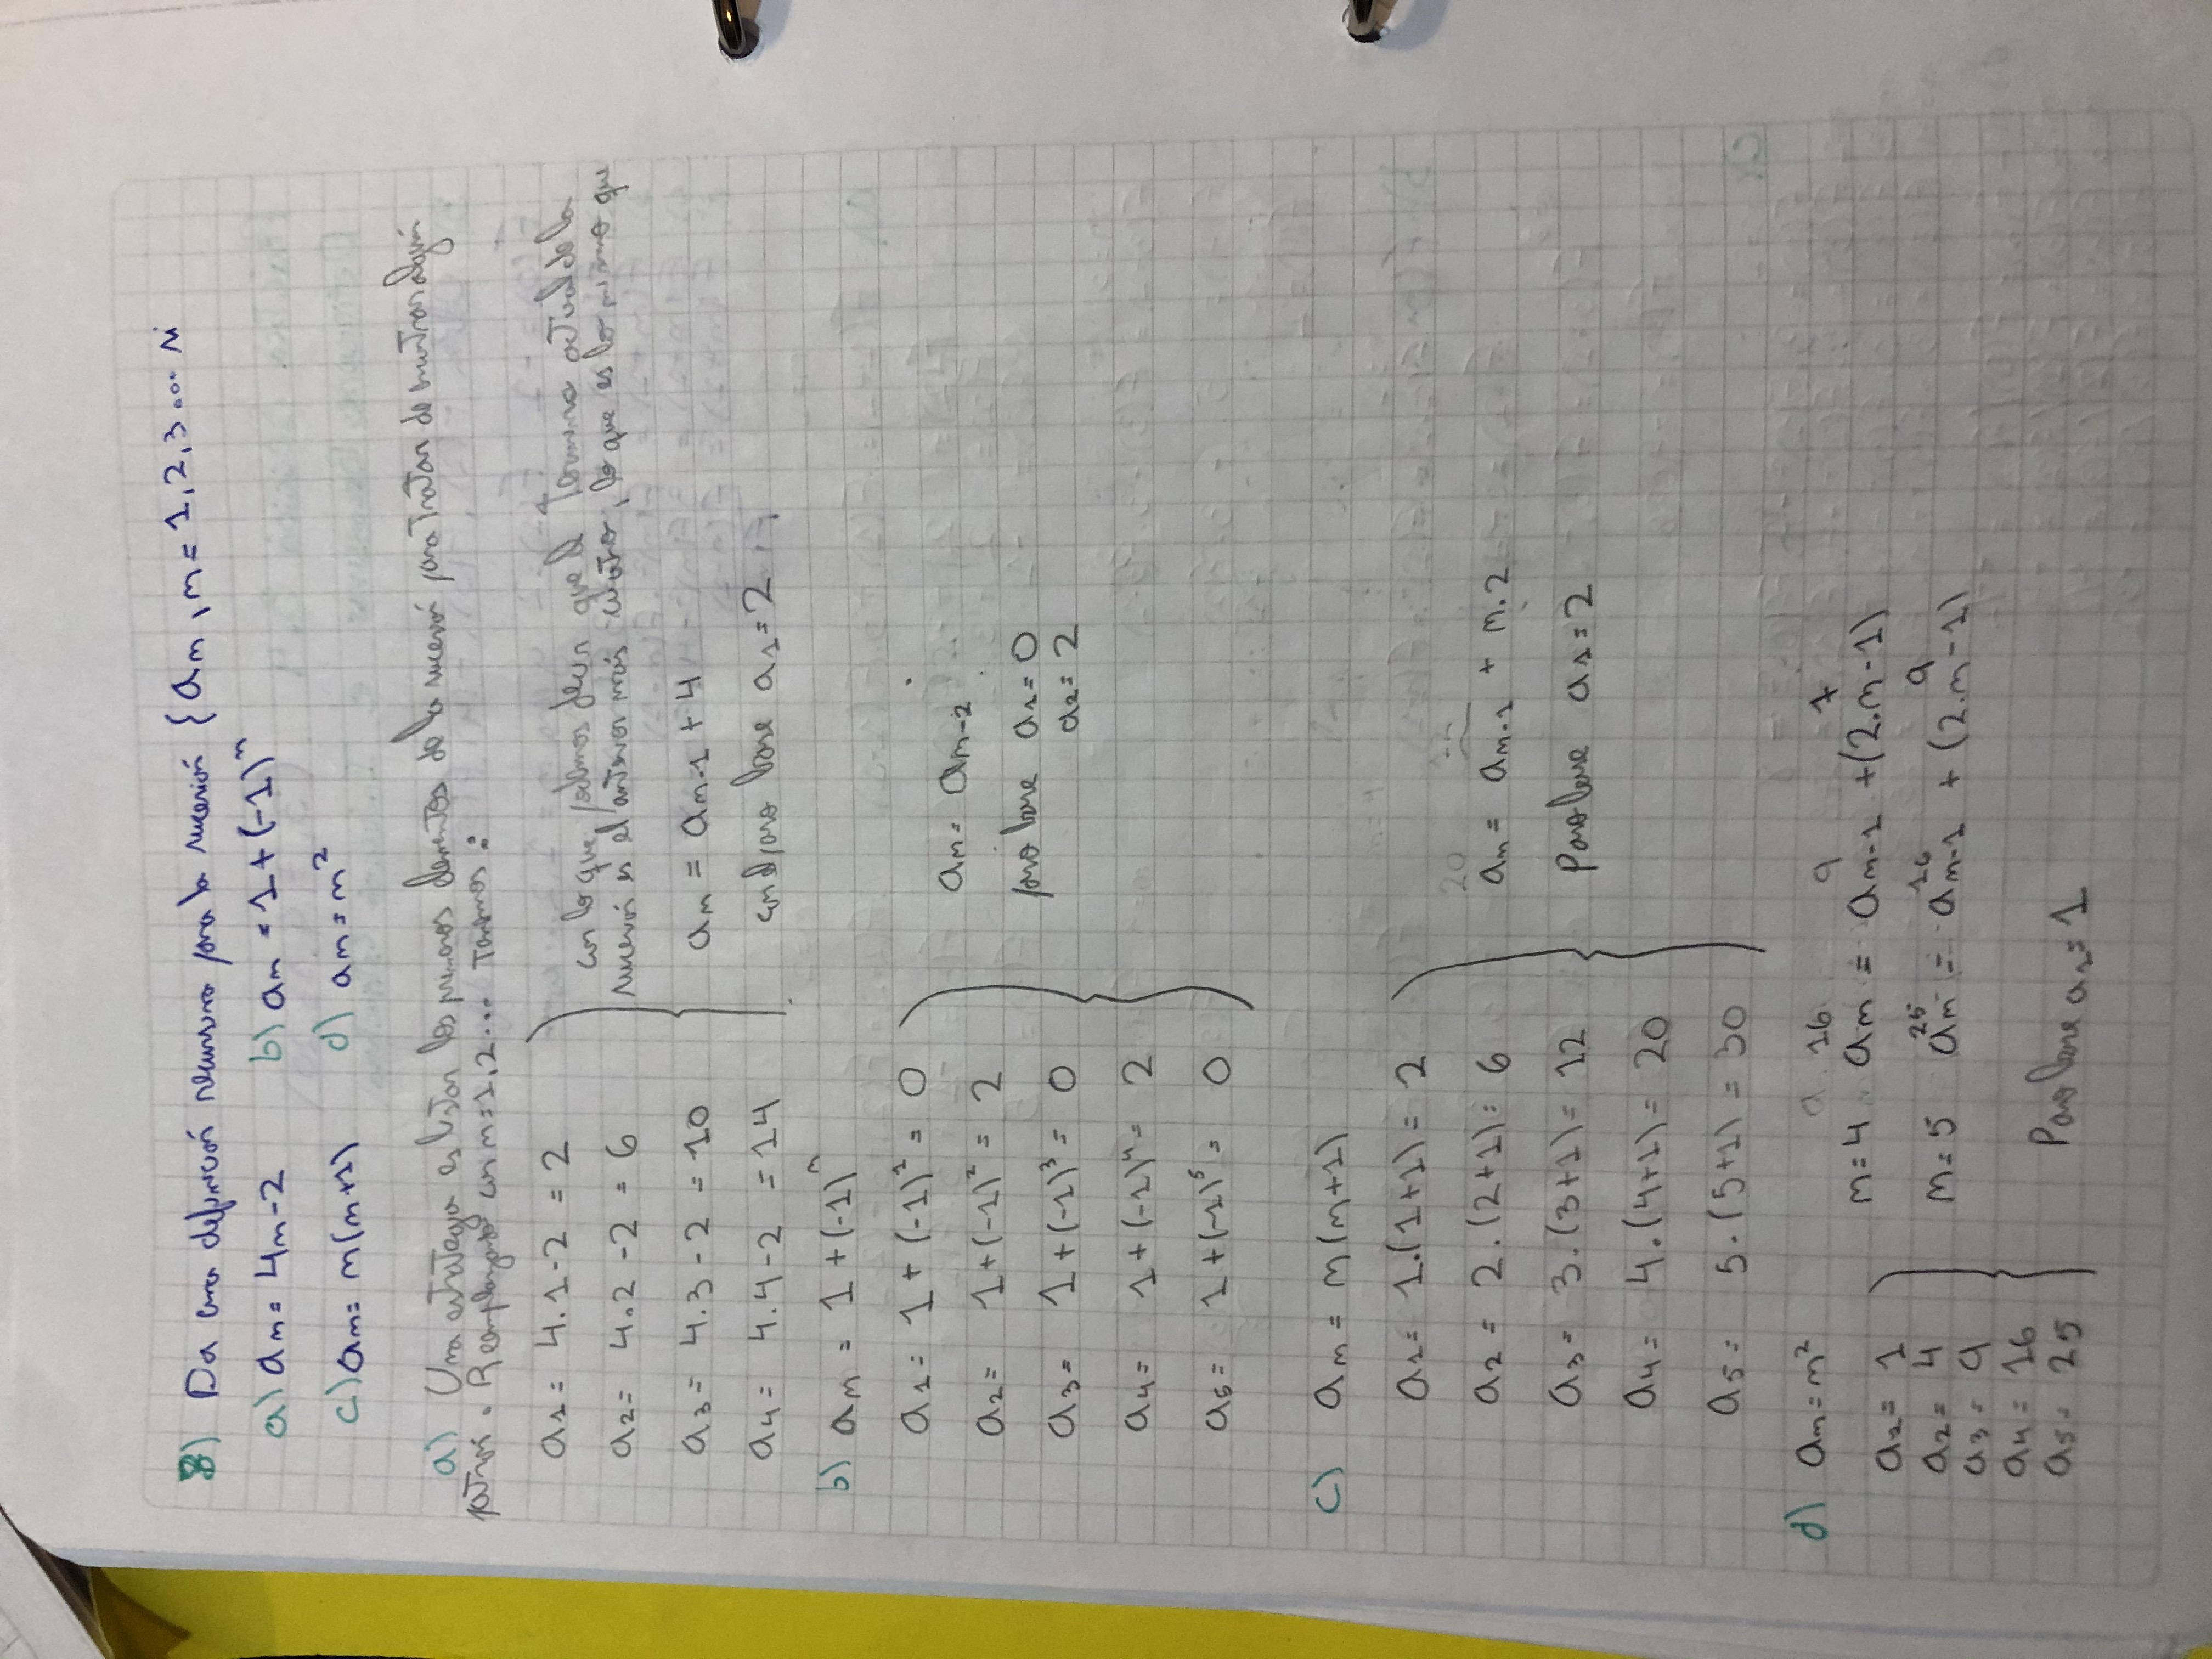 8) Da una definición recursiva para la sucesión {an, n = 1, 2, 3... si
a) an = 4n-2 b) an = 1 + (-1)^n
c) an = n(n+1) d) an = n²
a) Una estrategia es listar los primeros elementos de la sucesión para tratar de encontrar algún
patrón. Reemplazando con n=1,2... Tenemos:
a1 = 4.1-2 = 2
a2 = 4.2-2 = 6
a3 = 4.3-2 = 10
a4 = 4.4-2 = 14
con lo que podemos decir que el Termino actual de la
sucesión es el anterior más cuatro, lo que es lo mismo que
an = an-1 + 4
con el paso base a1 = 2
b) an = 1 + (-1)^n
a1 = 1 + (-1)^1 = 0
a2 = 1 + (-1)^2 = 2
a3 = 1 + (-1)^3 = 0
a4 = 1 + (-1)^4 = 2
a5 = 1 + (-1)^5 = 0
an = an-2
paso base a1 = 0
a2 = 2
c) an = n(n+1)
a1 = 1.(1+1) = 2
a2 = 2.(2+1) = 6
a3 = 3.(3+1) = 12
a4 = 4.(4+1) = 20
a5 = 5.(5+1) = 30
20
an = an-1 + n.2
Paso base a1 = 2
d) an = n²
a1 = 1
a2 = 4
a3 = 9
a4 = 16
a5 = 25
16 9 7
n=4 an = an-1 + (2.n-1)
25 16 9
n=5 an = an-1 + (2.n-1)
Paso base a1 = 1